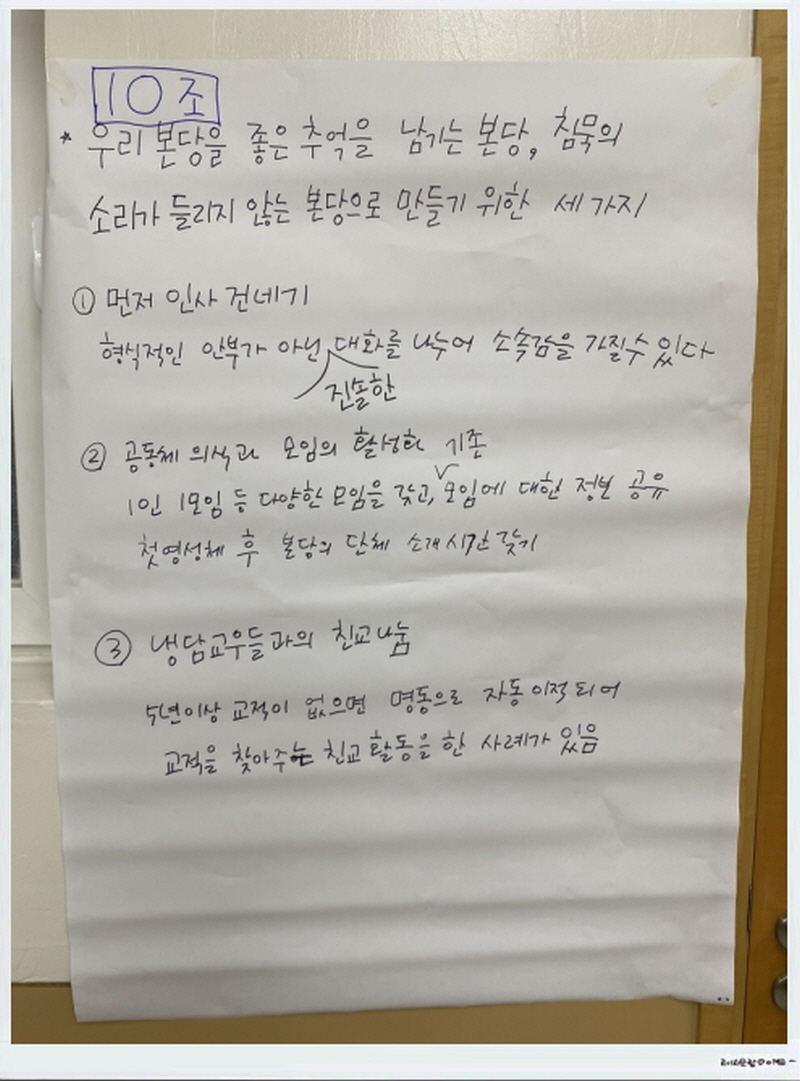 10조
* 우리 본당을 좋은 추억을 남기는 본당, 침묵의
소리가 들리지 않는 본당으로 만들기 위한 세 가지
① 먼저 인사 건네기
형식적인 안부가 아닌 진솔한 대화를 나누어 소속감을 가질수 있다
② 공동체 의식과 모임의 활성화
1인 1모임 등 다양한 모임을 갖고, 기존 모임에 대한 정보 공유
첫영성체 후 본당의 단체 소개시간 갖기
③ 냉담교우들과의 친교나눔
5년이상 교적이 없으면 명동으로 자동이적되어
교적을 찾아주는 친교 활동을 한 사례가 있음